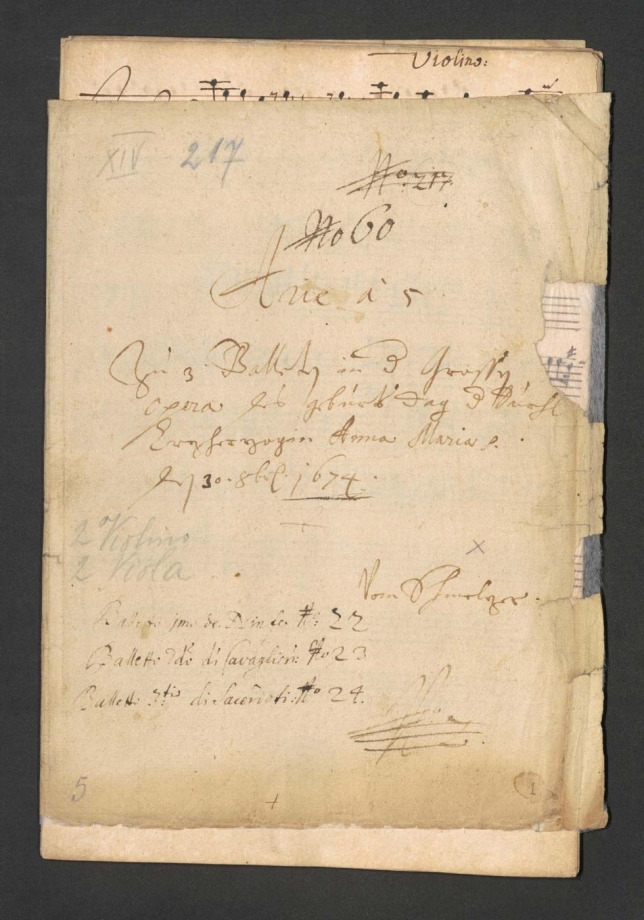 Violino:
XIV 217
No 60
Arie à 5
Zu 3 Balleten in d Grossen
opera des geburts dag d Durchl
Erzherzogin Anna Maria
den 30. 8bris. 1674.
2 Violino
2 Viola
Vom Schmelzer.
Balletto 1mo No: 22
Balletto 2do di Cavaglieri No 23
Balletto 3tio di Sacerdoti: No 24.
5
1